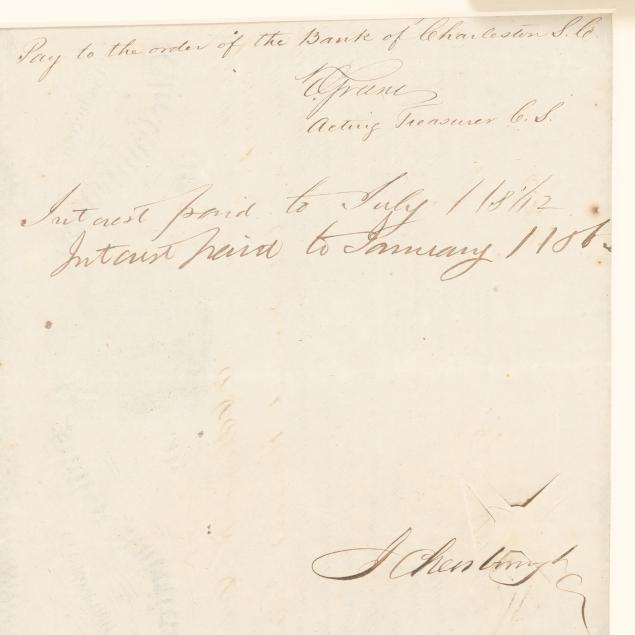 Pay to the order of the Bank of Charleston S. C
Acting Treasurer C. S.
Interest paid to July 1 1862
Interest paid to January 1 186
J Cheesbrough